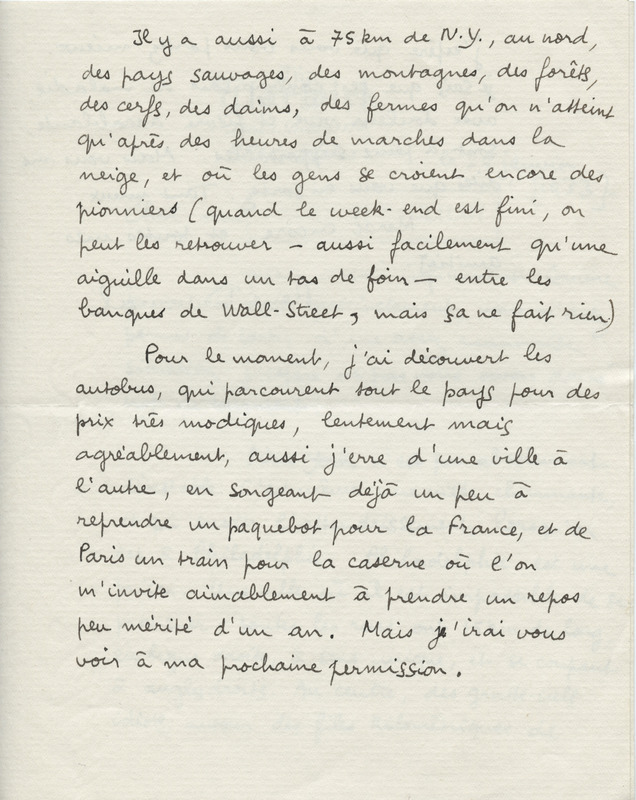 Il y a aussi à 75 km de N.Y., au nord,
des pays sauvages, des montagnes, des forêts,
des cerfs, des daims, des fermes qu'on n'atteint
qu'après des heures de marches dans la
neige, et où les gens se croient encore des
pionniers (quand le week-end est fini, on
peut les retrouver – aussi facilement qu'une
aiguille dans un tas de foin – entre les
banques de Wall-Street, mais ça ne fait rien)
Pour le moment, j'ai découvert les
autobus, qui parcourent tout le pays pour des
prix très modiques, lentement mais
agréablement, aussi j'erre d'une ville à
l'autre, en songeant déjà un peu à
reprendre un paquebot pour la France, et de
Paris un train pour la caserne où l'on
m'invite aimablement à prendre un repos
peu mérité d'un an. Mais j'irai vous
voir à ma prochaine permission.